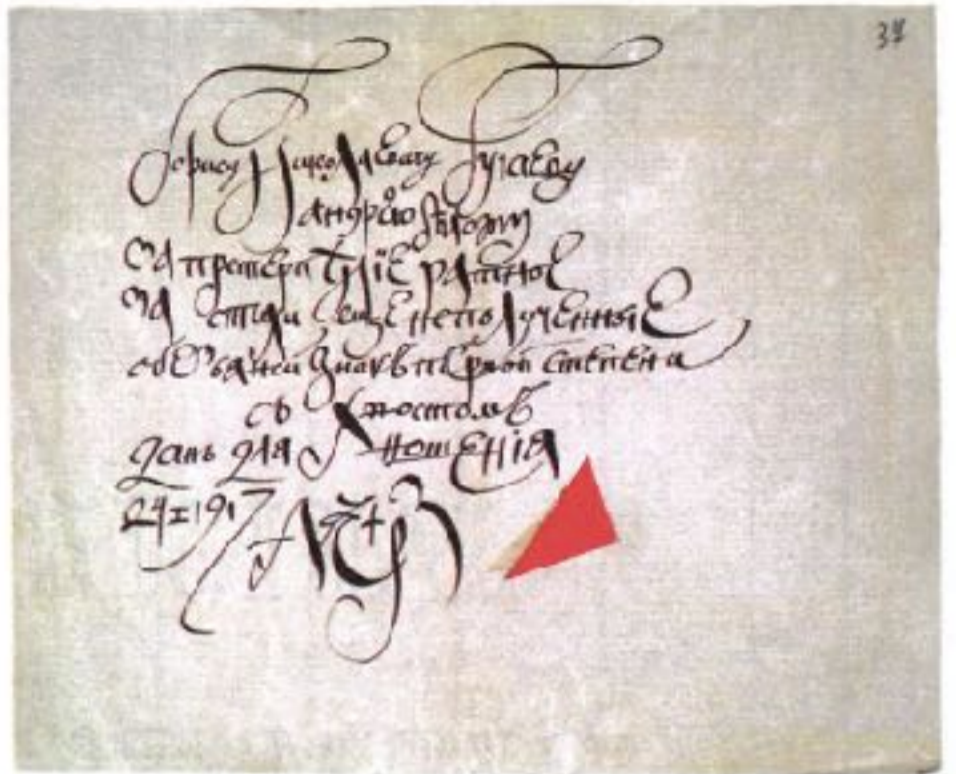 37
Борису Николаевичу Бугаеву
Андрею Бѣлому
за претерпѣнiе ратное
за еще неполученные
обезьянiй знакъ первой степени
съ хвостомъ
данъ для ношенiя
24 I 1917